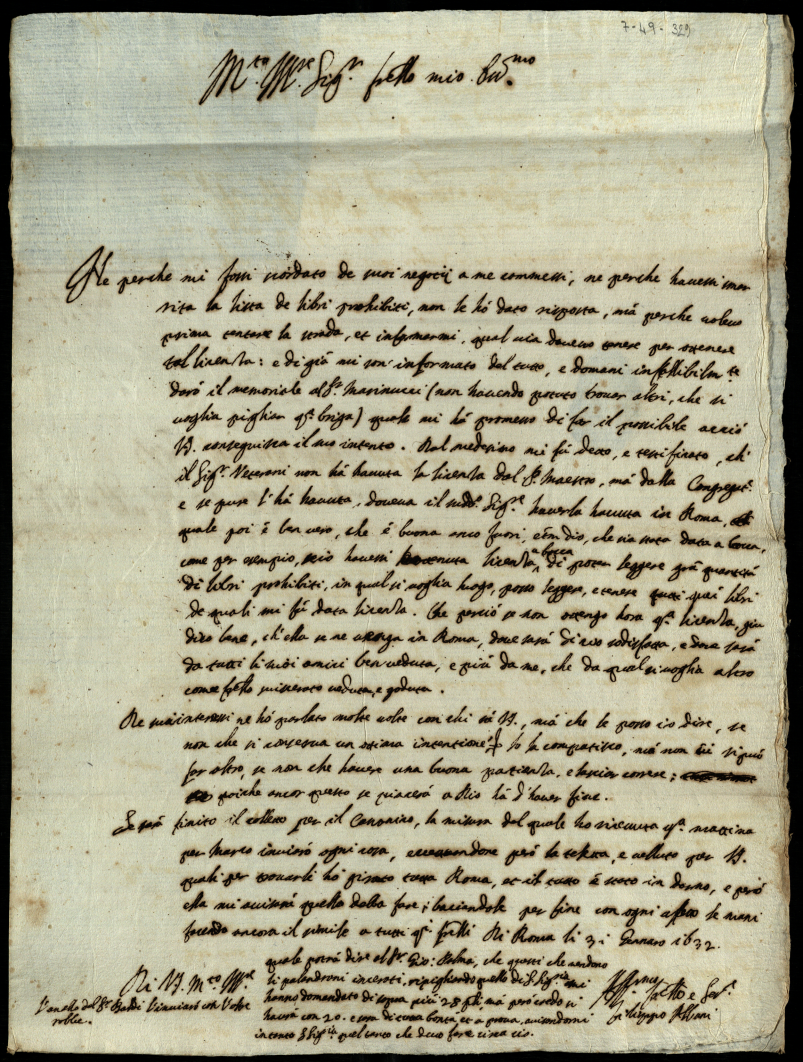 7-49-329
M.to Ill.re Sig.r fratello mio
Ne perche mi fossi scordato de suoi negotij a me commessi, ne perche havessi smar
rita la lista de libri prohibiti, non le hò dato risposta, mà perche volevo
prima tentare la strada, et informarmi, qual via dovevo tenere per ottenere
tal licenza: e di già mi son' informato del tutto, e domani infallibilm.te
darò il memoriale al S.r Marinucci (non havendo potuto trovar altri, che si
voglia pigliar q.a briga) quale mi hà promesso di far il possibile acciò
V.S. conseguisca il suo intento. Dal medesimo mi fù detto, e testificato, ch'
il Sig.r Veterani non hà havuta la licenza dal P. Maestro, mà dalla Congregat.e
e se pure l'hà havuta, doveva il sud.o Sig.re haverla havuta in Roma,
quale poi è ben vero, che è buona anco fuori, che sia stata data a bocca,
come per esempio, s'io havessi ottenuta licenza a bocca di poter leggere quantità
di libri prohibiti, in qual si voglia luogo, posso leggere, e tenere tutti quei libri
de quali mi fù data licenza. Che perciò se non ottengo hora q.a licenza, giu
dico bene, ch'ella se ne venga in Roma, dove sarà di ciò sodisfatta, e dove sarà
da tutti li suoi amici ben veduta, e più da me, che da qual si voglia altro
come fratello sviscerato veduta, e goduta.
De suoi interessi ne hò parlato molte volte con chi sà V.S., mà che le posso io dire, se
non che si conserva un ottima intentione? Io la compatisco, mà non si può
far altro, se non che havere una buona patienza, e lasciar correre;
poiche ancor questo se piacerà a Dio hà d'haver fine.
Se sarà finito il colletto per il Canonico, la misura del quale ho ricevuta q.a mattina
per Marco inviarò ogni cosa, eccettuandone però la teletta, e velluto per V.S.
quali per trovarli hò girato tutta Roma, et il tutto è stato in darno, e però
ella mi avisarà quello debba fare; baciandole per fine con ogni affetto le mani
facendo ancora il simile a tutti q.i fratelli Di Roma li 31 Gennaro 1632.
quale potrà dire al S.r Gio: Palma, che questi che vendono
li palandroni incerati, ripigliando quello di S. Sig.ria mi
hanno domandato di sopra più 28 mà però credo si
havrà con 20. e sarà di tutta bontà et a prova, avisandomi
intanto S. Sig.ria quel tanto che devo fare circa ciò.
Di V.S. M.to Ill.re
L'anello del S.r Baldi l'inviarò con l'altre
robbe.
Aff.mo fratello e Ser.re
Filippo Albani